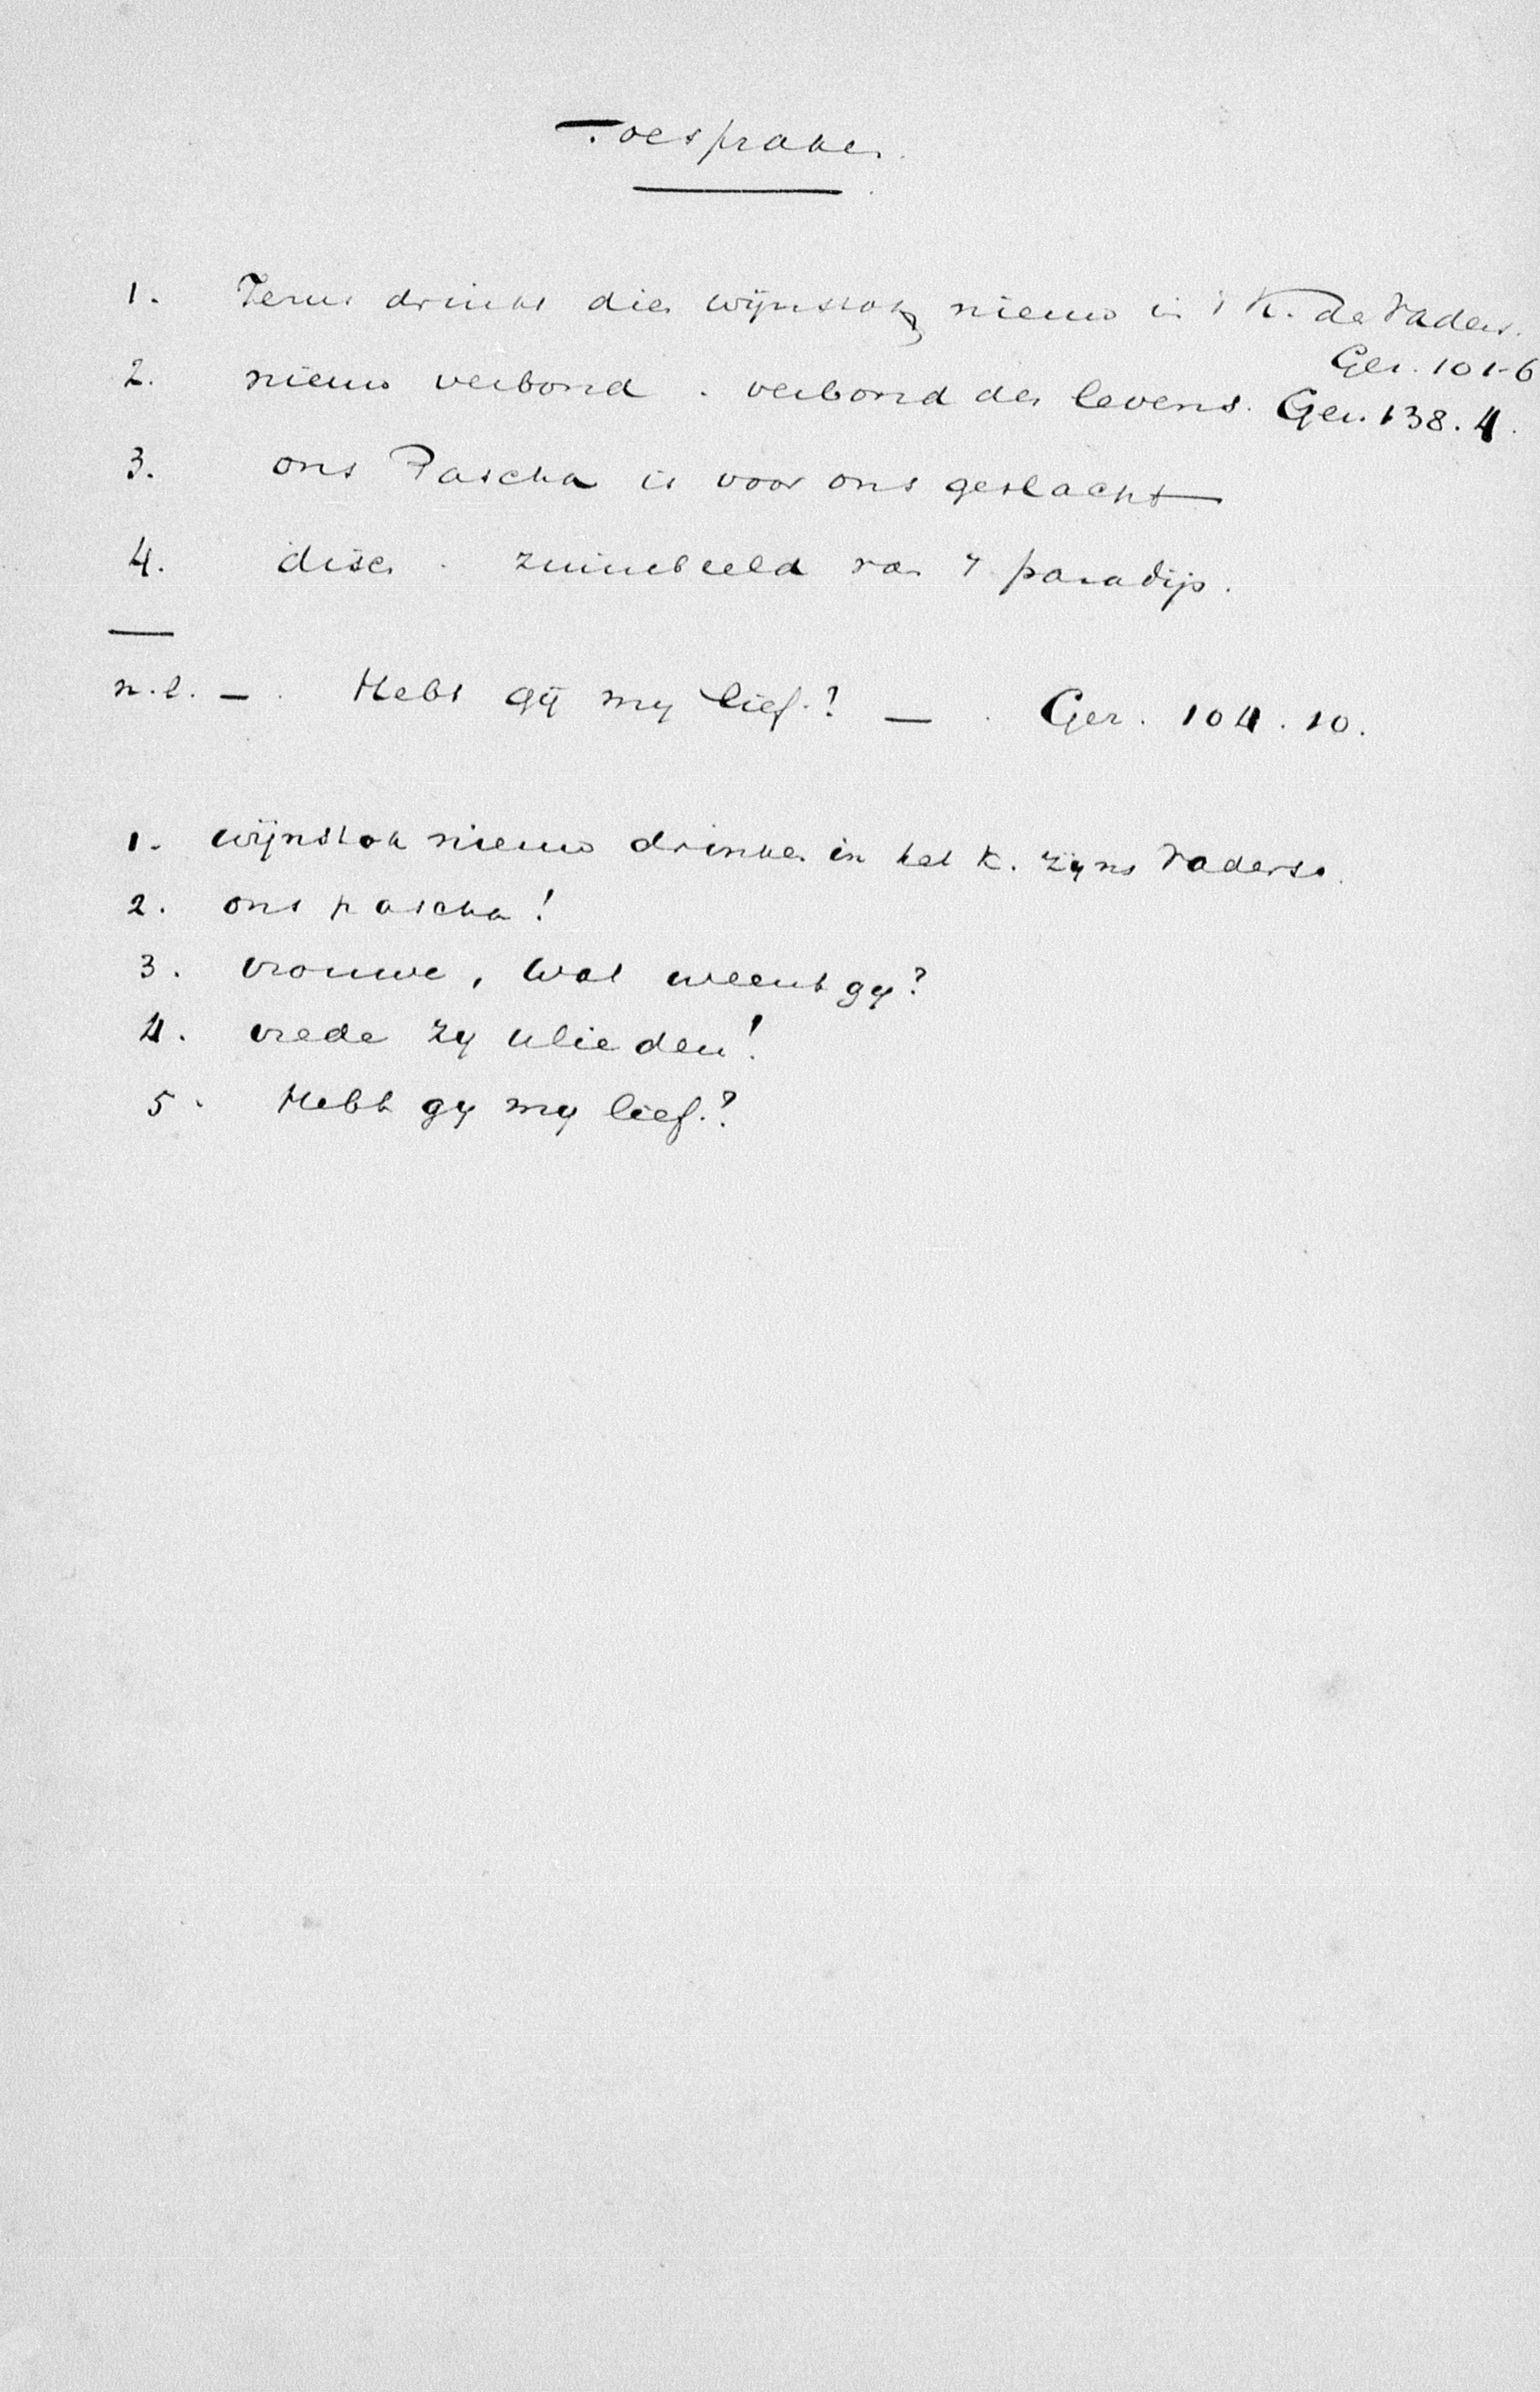 Toespraken.
1. Jezus drinkt dien wijnstok nieuw in 't K. des Vaders.
Gez. 101-6
2. nieuw verbond . verbond des levens. Gez. 138.4.
3. ons Pascha is voor ons geslacht
4. disch . zinnebeeld van 't paradijs.
n.l. — . Hebt gij my lief.? — . Gez. 104.10.
1. wijnstok nieuw drinken in het K. zijns Vaders.
2. ons pascha!
3. vrouwe, wat weent gy?
4. vrede zy ulieden!
5. Hebt gy my lief.?